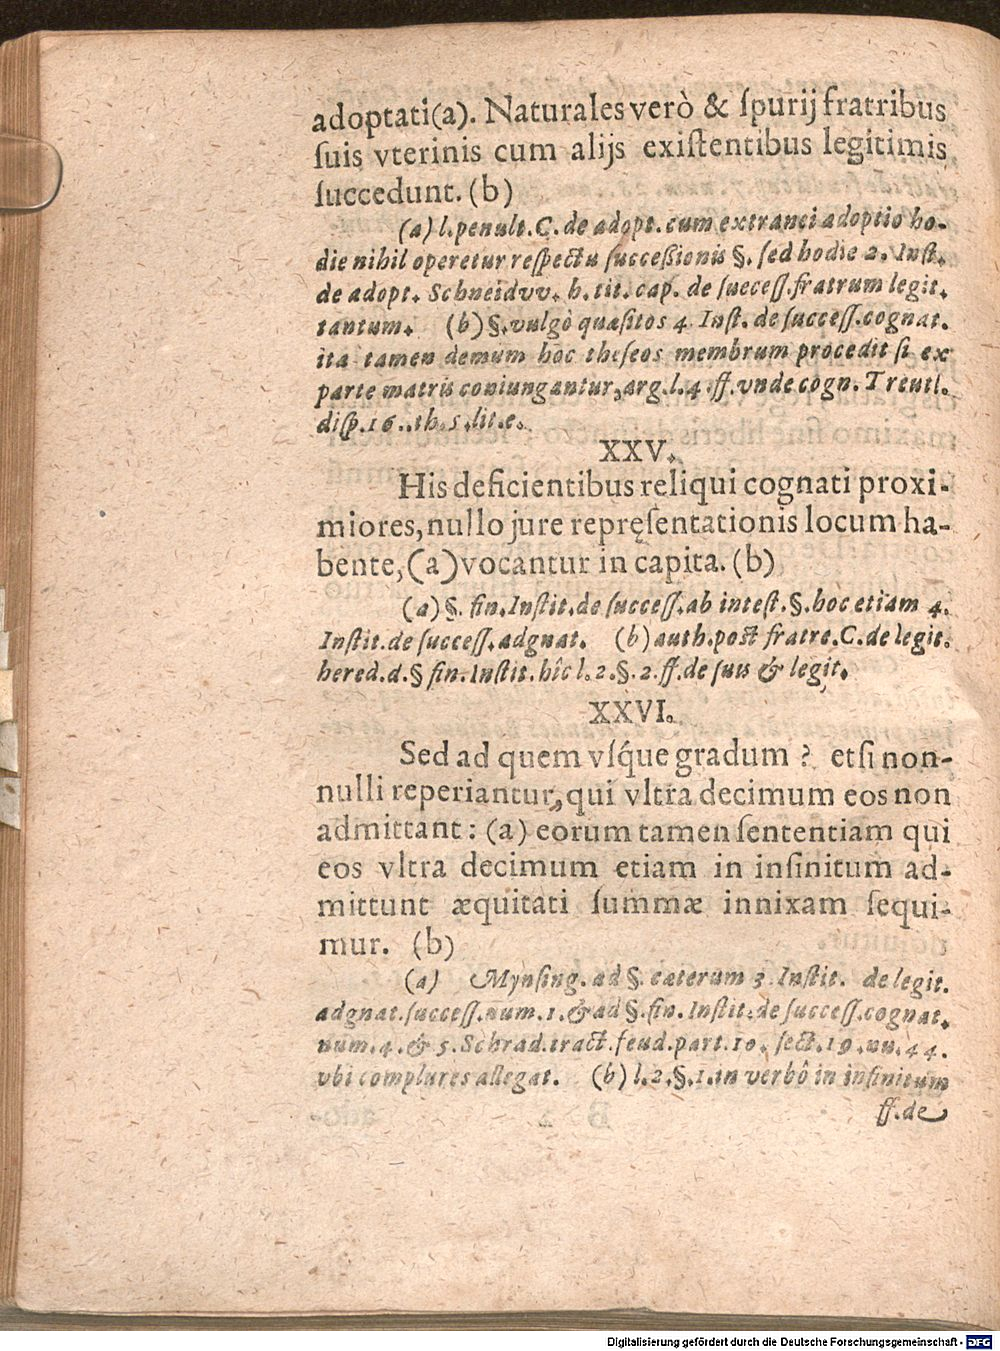 adoptati(a). Naturales verò & ſpurij fratribus
ſuis vterinis cum alijs exiſtentibus legitimis
ſuccedunt. (b)
(a) l. penult. C. de adopt. cum extranei adoptio ho-
die nihil operetur reſpectu ſucceßionis §. ſed hodie 2. Inſt.
de adopt. Schneidvv. h. tit. cap. de ſueceſſ. fratrum legit.
tantum. (b) §. vulgò quæſitos 4. Inſt. de ſucceſſ. cognat.
ita tamen demum hoc theſeos membrum procedit ſi ex
parte matris coniungantur, arg. l. 4. ff. vnde cogn. Treutl.
diſp. 16.. th. 5. lit. e.
XXV.
His deficientibus reliqui cognati proxi-
miores, nullo jure repręſentationis locum ha-
bente, (a) vocantur in capita. (b)
(a) §. fin. Inſtit. de ſucceſſ. ab inteſt. §. hoc etiam 4.
Inſtit. de ſucceſſ. adgnat. (b) auth. post fratre. C. de legit.
hered. d. § fin. Inſtit. hîc l. 2. §. 2. ff. de ſuis & legit.
XXVI.
Sed ad quem vſq́ue gradum? etſi non-
nulli reperiantur, qui vltra decimum eos non
admittant: (a) eorum tamen ſententiam qui
eos vltra decimum etiam in infinitum ad-
mittunt æquitati ſummæ innixam ſequi-
mur. (b)
(a) Mynſing. ad §. cæterum 3. Inſtit. de legit.
adgnat. ſucceſſ. num. 1. & ad §. fin. Inſtit. de ſucceſſ. cognat.
num. 4. & 5. Schrad. tract. feud. part. 10. ſect. 19. nu. 44.
vbi complures allegat. (b) l. 2. §. 1. in verbô in infinitum
ff. de
Digitalisierung gefördert durch die Deutsche Forschungsgemeinschaft - DFG